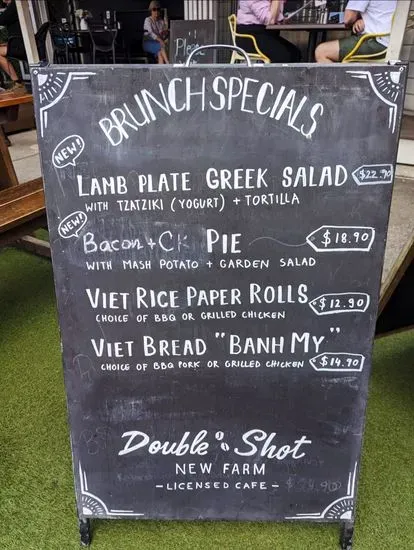 Ple
BRUNCH SPECIALS
NEW!
LAMB PLATE GREEK SALAD $22.90
WITH TZATZIKI (YOGURT) + TORTILLA
NEW!
Bacon + CK PIE $18.90
WITH MASH POTATO + GARDEN SALAD
VIET RICE PAPER ROLLS $12.90
CHOICE OF BBQ OR GRILLED CHICKEN
VIET BREAD "BANH MY"
CHOICE OF BBQ PORK OR GRILLED CHICKEN $14.90
Double Shot
NEW FARM
- LICENSED CAFE -